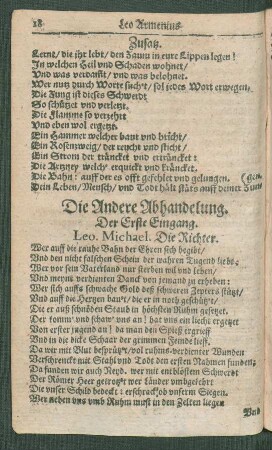 18 Leo Armenius
Zusatz.
Lernt / die ihr lebt / den Zaum in eure Lippen legen!
In welchen Heil und Schaden wohnet /
Und was verdamt / und was belohnet.
Wer nutz durch Worte such't / sol jedes Wort erwegen.
Die Zung ist dieses Schwerdt
So schützet und verletzt.
Die Flamme so verzehrt
Und eben wol ergetzt.
Ein Hammer welcher baut und bricht /
Ein Rosenzweig / der reucht und sticht /
Ein Strom der träncket und erträncket:
Die Artzney welch' erquickt und kräncket.
Die Bahn: auff der es offt gefehlet und gelungen. (gen.
Dein Leben / Mensch / und Todt hält stäts auff deiner Zun-
Die Andere Abhandelung.
Der Erste Eingang.
Leo. Michael. Die Richter.
Wer auff die rauhe Bahn der Ehren sich begibt /
Und den nicht falschen Schein der wahren Tugend liebt;
Wer vor sein Vaterland nur sterben wil und leben /
Und meynt verdienten Danck von jemand zu erheben:
Wer sich auffs schwache Gold deß schweren Zepters stützt /
Und auff die Hertzen baut / die er in noth geschützt /
Die er auß schnödem Staub in höchsten Ruhm gesetzet.
Der komm' und schaw' uns an! hat uns ein liecht ergetzt
Von erster jugend an! da man den Spieß ergrieff
Und in die dicke Schaar der grimmen Feinde lieff.
Da wir mit Blut besprützt / vol ruhms-verdienter Wunden
Verschrenckt mit Stahl und Todt den ersten Nahmen funden;
Da funden wir auch Neyd. wer mit entblöstem Schwerdt
Der Römer Heer getrotzt wer länder umbgekehrt
Die unser Schild bedeckt: erschrack ob unserm Siegen.
Wer neben uns umb Ruhm must in den Zelten liegen
Und